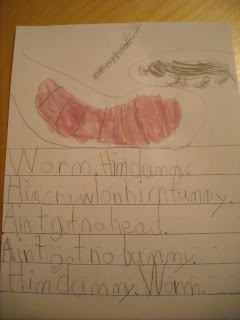 Worm. Him dumy.
Him crawl on him tummy.
Ain't got no head.
Ain't got no bummy.
Him dummy. Worm.